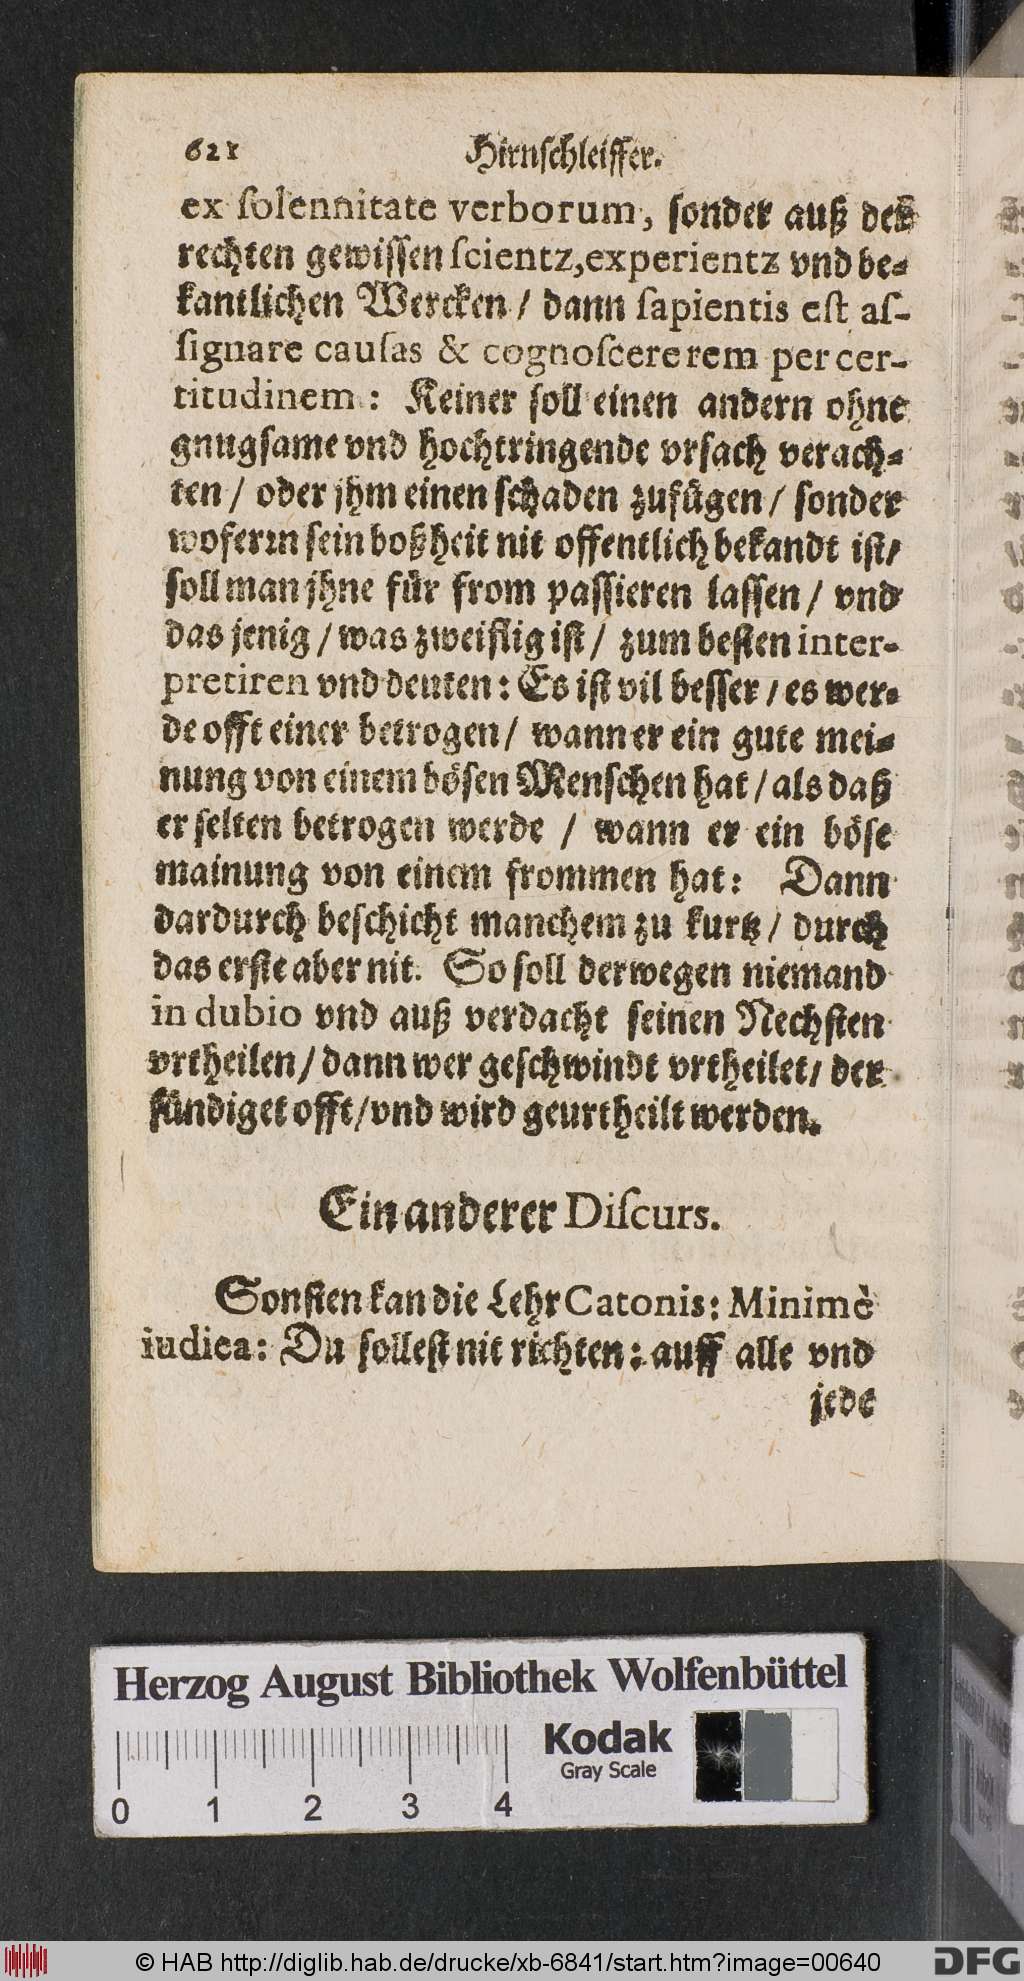 621 Hirnſchleiffer.
ex ſolennitate verborum, ſonder auß der
rechten gewiſſen ſcientz, experientz vnd be-
kantlichen Wercken / dann ſapientis eſt aſ-
ſignare cauſas & cognoſcere rem per cer-
titudinem: Keiner ſoll einen andern ohne
gnugſame vnd hochtringende vrſach verach-
ten / oder jhm einen ſchaden zufügen / ſonder
woferrn ſein boßheit nit offentlich bekandt iſt /
ſoll man jhne für from paſſieren laſſen / vnd
das jenig / was zweiflig iſt / zum beſten inter-
pretiren vnd deuten: Es iſt vil beſſer / es wer-
de offt einer betrogen / wann er ein gute mei-
nung von einem böſen Menſchen hat / als daß
er ſelten betrogen werde / wann er ein böſe
mainung von einem frommen hat: Dann
dardurch beſchicht manchem zu kurtz / durch
das erſte aber nit. So ſoll derwegen niemand
in dubio vnd auß verdacht ſeinen Nechſten
vrtheilen / dann wer geſchwindt vrtheilet / der
ſündiget offt / vnd wird geurtheilt werden.
Ein anderer Diſcurs.
Sonſten kan die Lehr Catonis: Minimè
iudica: Du ſolleſt nit richten: auff alle vnd
jede
Herzog August Bibliothek Wolfenbüttel
Kodak
Gray Scale
0 1 2 3 4
© HAB http://diglib.hab.de/drucke/xb-6841/start.htm?image=00640
DFG